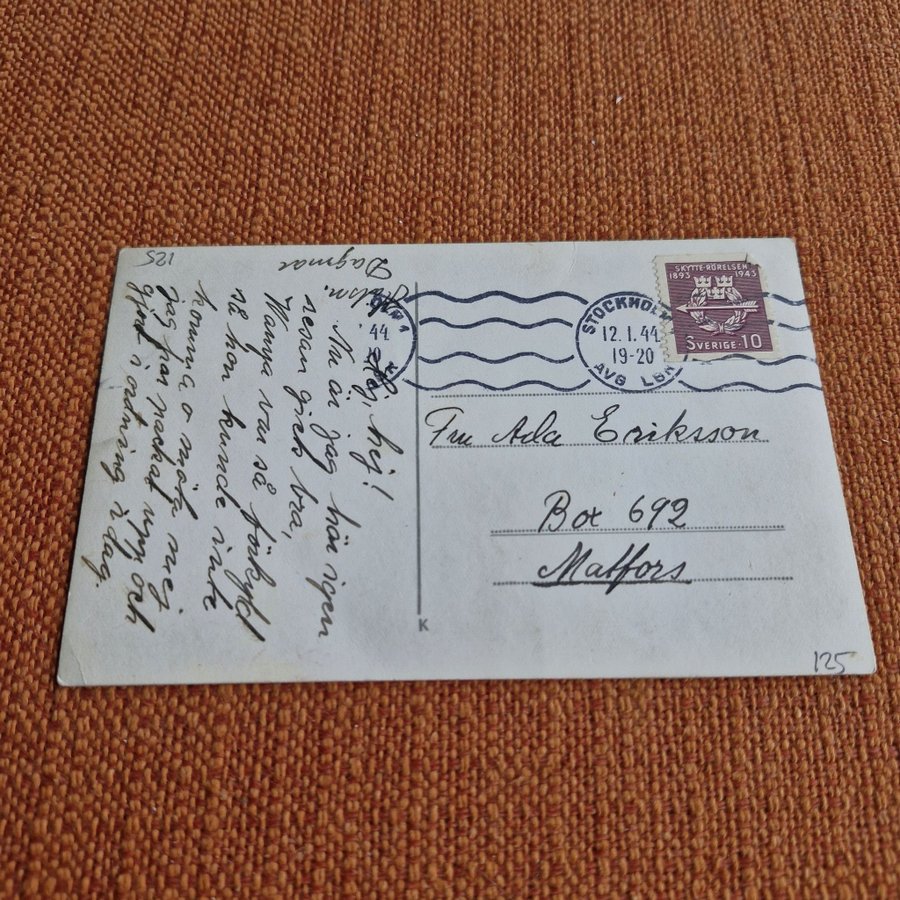 125
Dagmar
Hej hej!
Nu är jag här igen
resan gick bra,
Wanja var så förkyld
så hon kunde inte
komma o möta mej
Jag har packat upp och
gjort i ordning idag
44
SKYTTE-RÖRELSEN
1893 1943
SVERIGE·10
STOCKHOLM
12.1.44
19-20
AVG LBR
Fru Ada Eriksson
Box 692
Matfors
K
125